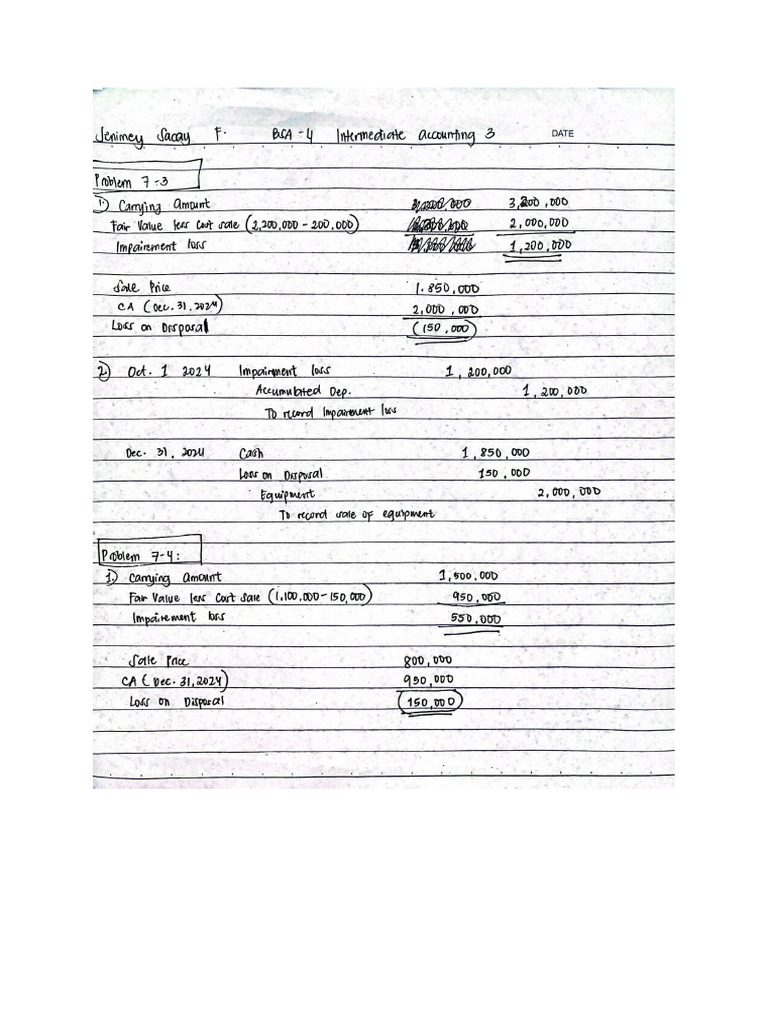 Jenimey Sacay F. BSA-4 Intermediate accounting 3 DATE
Problem 7-3
1. Carrying Amount 3,200,000
Fair Value less Cost sale (2,200,000 - 200,000) 2,000,000
Impairement loss 1,200,000
Sale Price 1.850,000
CA (Dec. 31, 2024) 2,000,000
Loss on Disposal (150,000)
2.) Oct. 1 2024 Impairment loss 1,200,000
Accumulated Dep. 1,200,000
To record Impairment loss
Dec. 31, 2024 Cash 1,850,000
Loss on Disposal 150,000
Equipment 2,000,000
To record sale of equipment
Problem 7-4:
1.) Carrying amount 1,500.000
Fair Value less Cost Sale (1.100.000-150,000) 950,000
Impairement loss 550,000
Sale Price 800,000
CA (Dec. 31, 2024) 950,000
Loss on Disposal 150,000